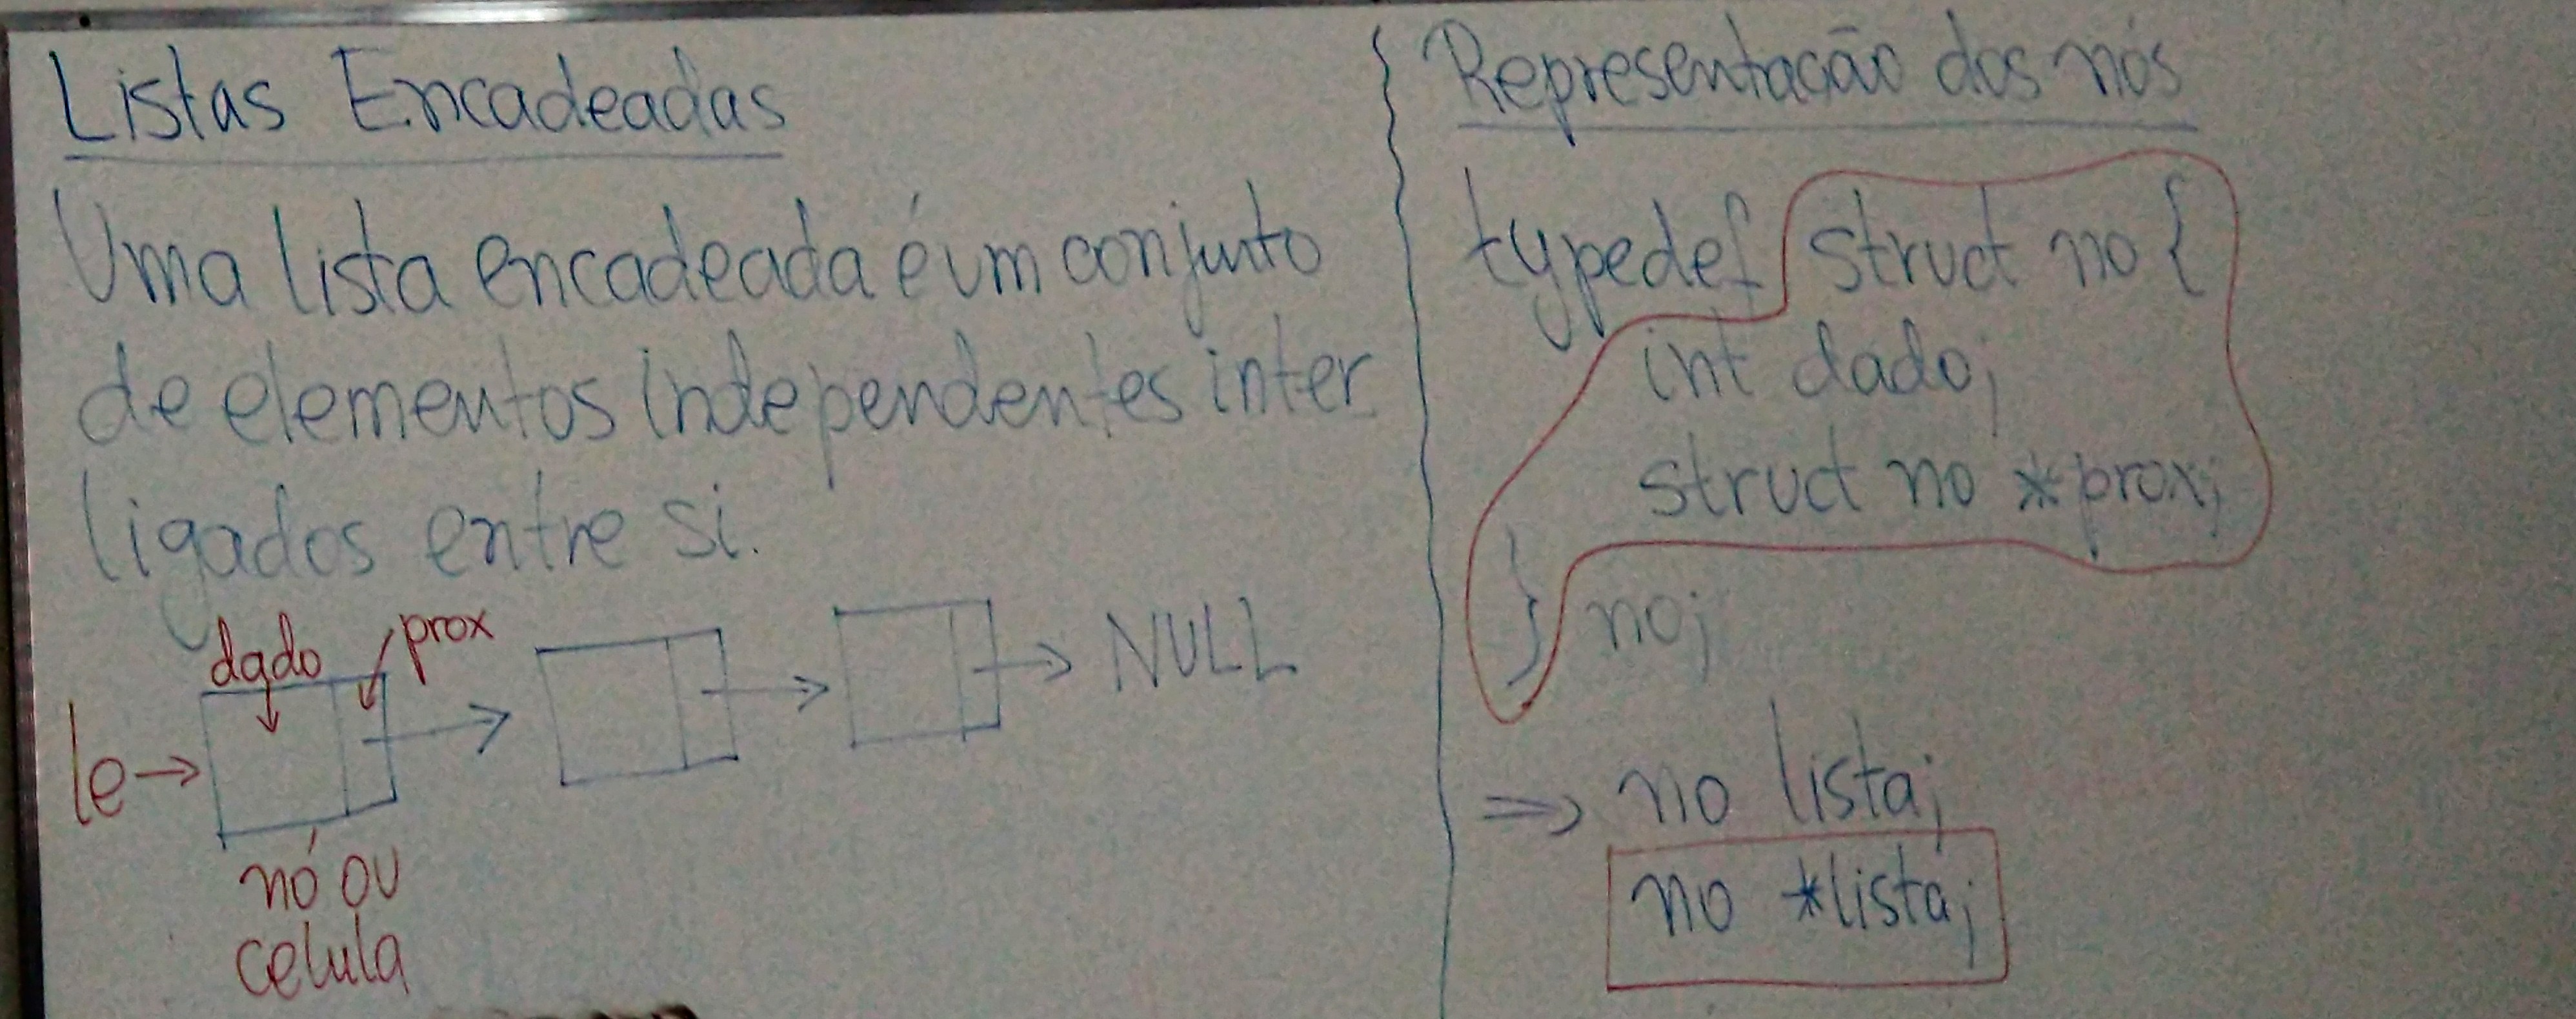 Listas Encadeadas
Uma lista encadeada é um conjunto
de elementos independentes inter
ligados entre si.
dado prox
le→ → → → NULL
nó ou
celula
Representação dos nós
typedef struct no {
int dado;
struct no *prox;
} no;
⇒ no lista;
no *lista;